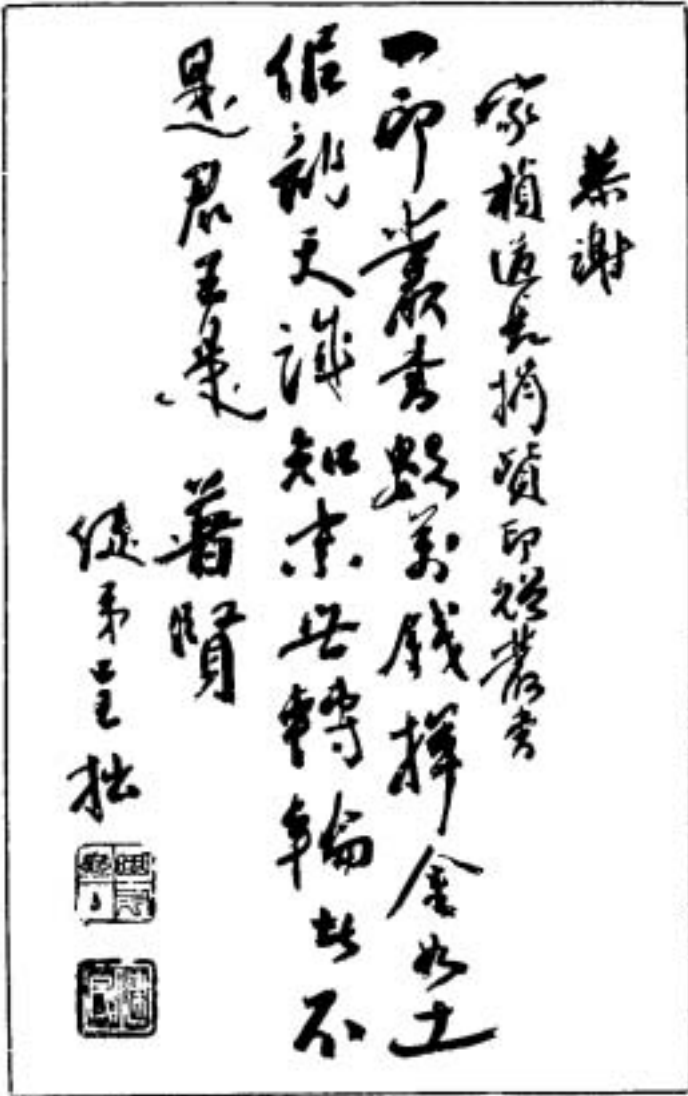 恭謝
家楨道長捐貲印贈叢書
一印叢書數萬錢揮金如土
龍天誰知末世轉輪者不
是君王是普賢
弟呈拙